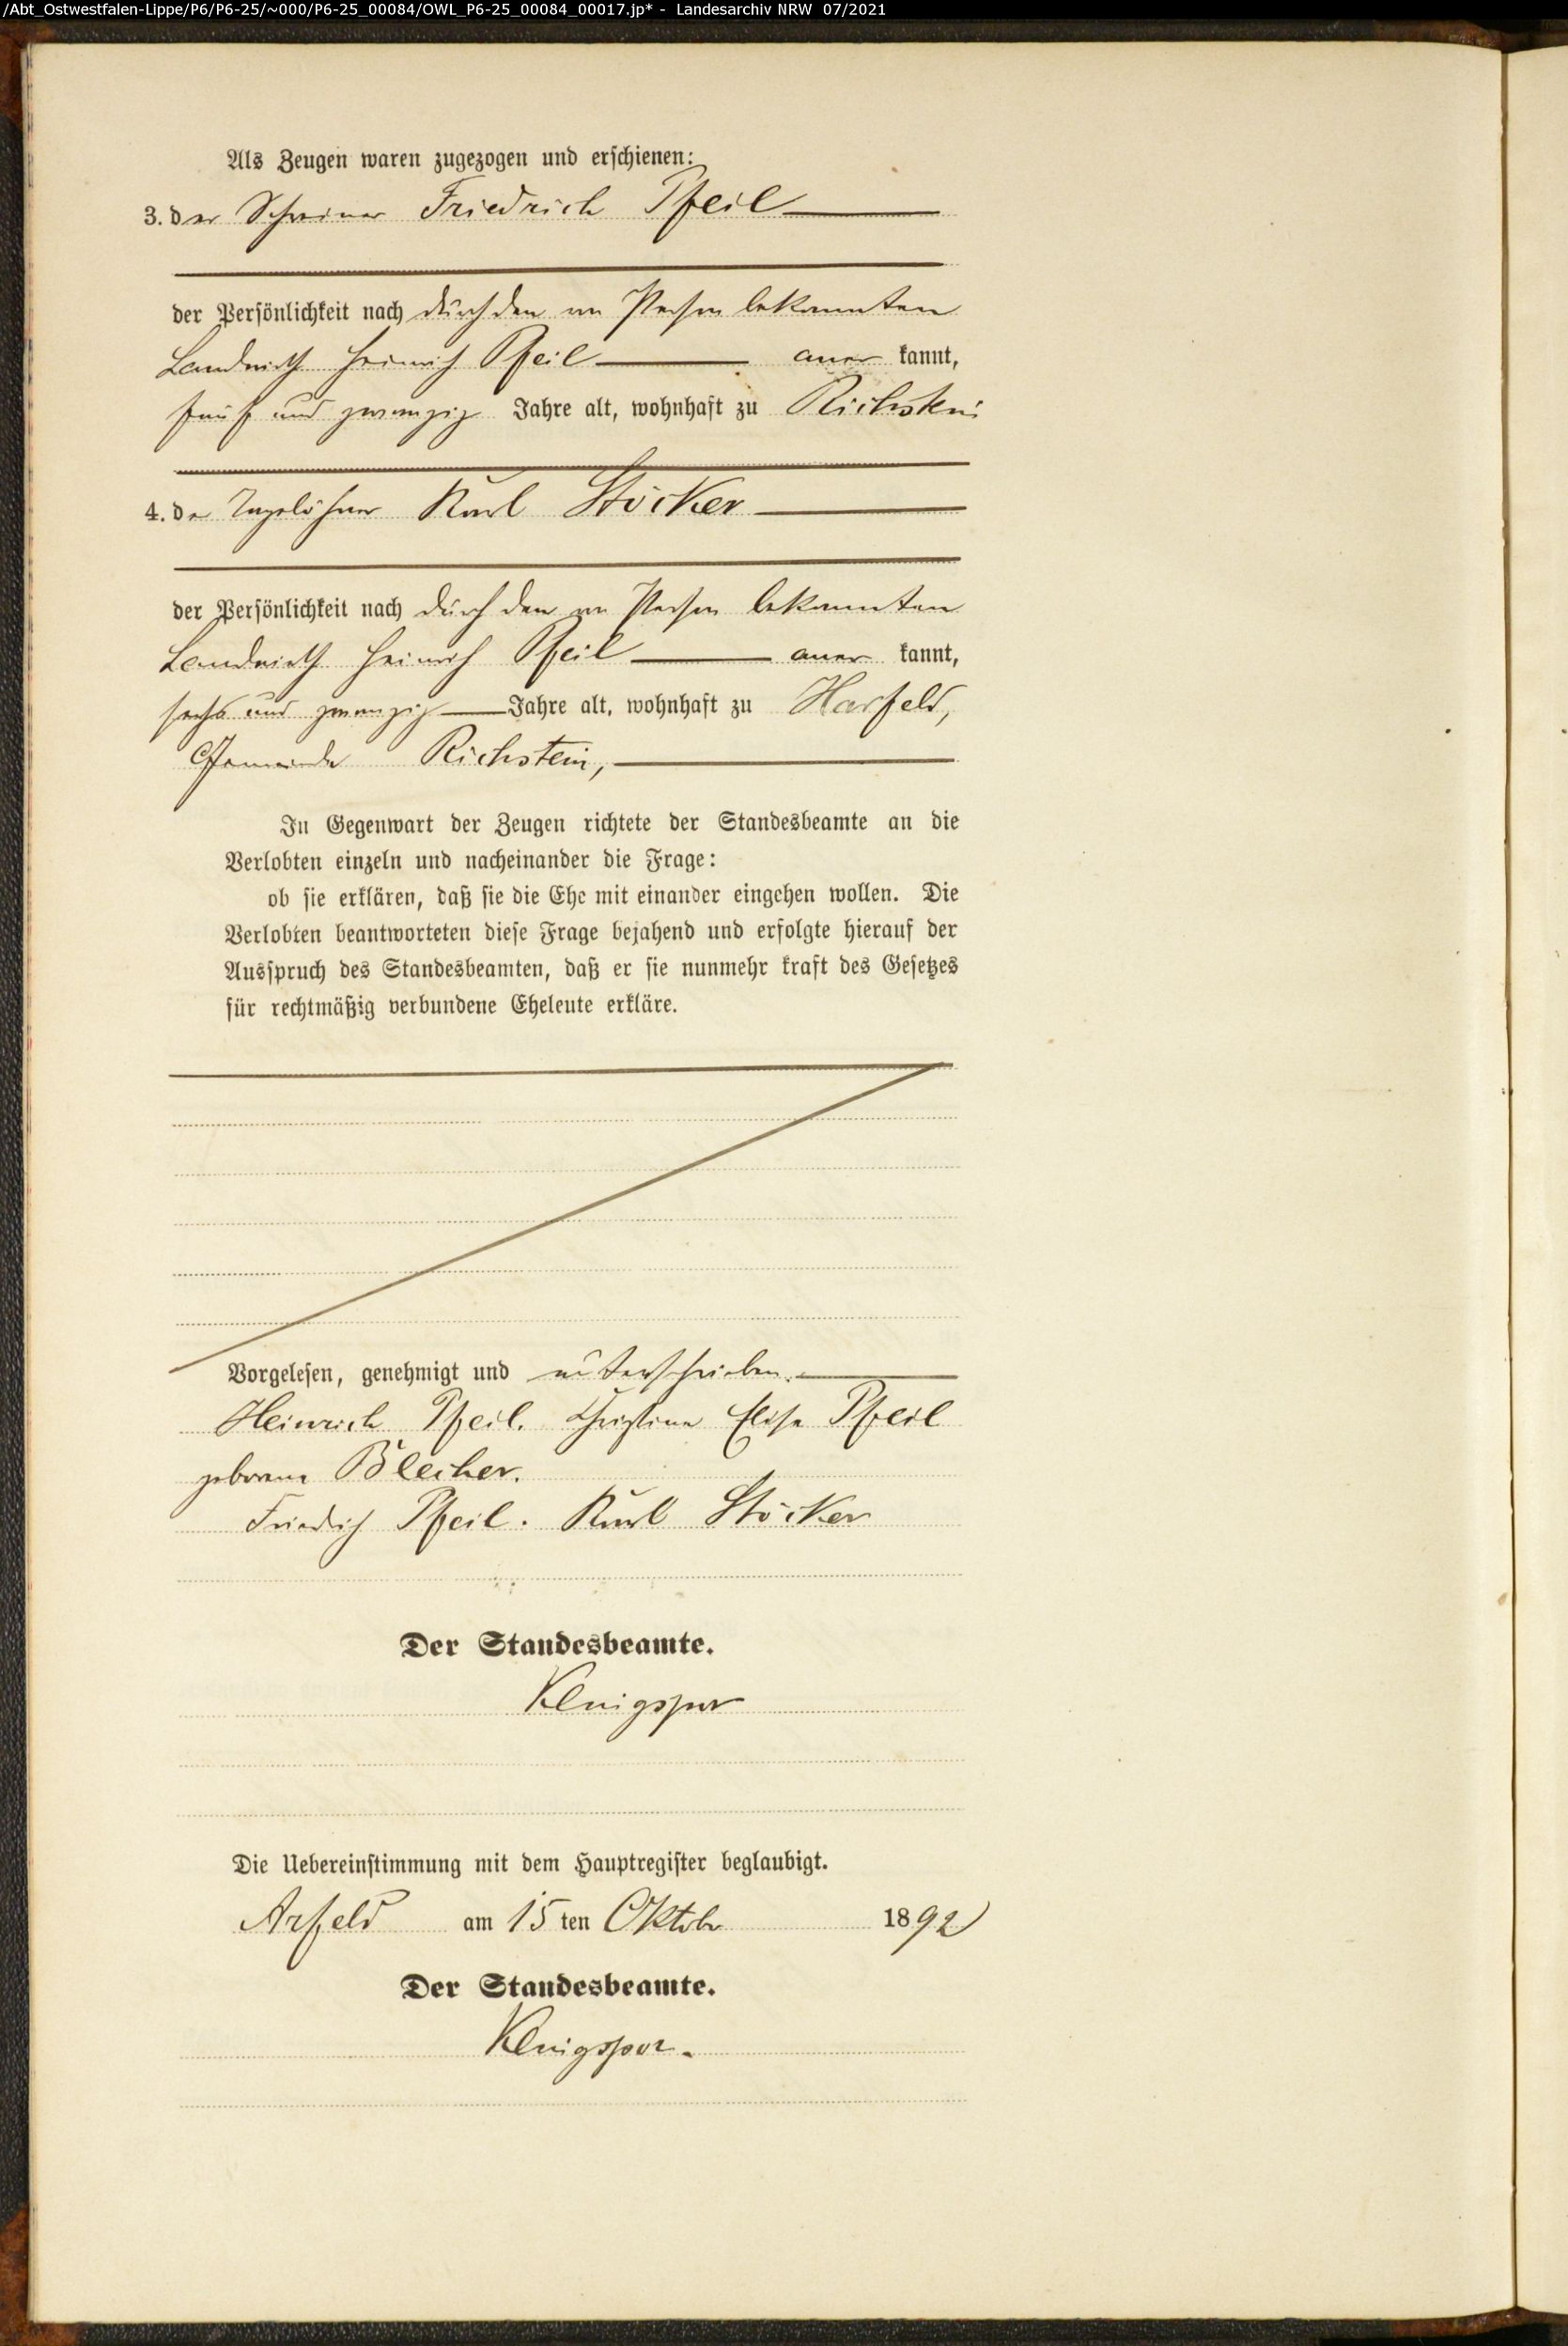 /Abt_Ostwestfalen-Lippe/P6/P6-25/~000/P6-25_00084/OWL_P6-25_00084_00017.jp* - Landesarchiv NRW 07/2021
Als Zeugen waren zugezogen und erschienen:
3. der Schreiner Friedrich Pfeil
der Persönlichkeit nach durch den von Person bekannten
Landwirth Heinrich Pfeil aner kannt,
fünf und zwanzig Jahre alt, wohnhaft zu Richstein
4. der Tagelöhner Karl Stöcker
der Persönlichkeit nach durch den von Person bekannten
Landwirth Heinrich Pfeil aner kannt,
sechs und zwanzig Jahre alt, wohnhaft zu Harfeld,
Gemeinde Richstein,
In Gegenwart der Zeugen richtete der Standesbeamte an die
Verlobten einzeln und nacheinander die Frage:
ob sie erklären, daß sie die Ehe mit einander eingehen wollen. Die
Verlobten beantworteten diese Frage bejahend und erfolgte hierauf der
Ausspruch des Standesbeamten, daß er sie nunmehr kraft des Gesetzes
für rechtmäßig verbundene Eheleute erkläre.
Vorgelesen, genehmigt und unterschrieben.
Heinrich Pfeil. Christine Elise Pfeil
geborene Bleicher.
Friedrich Pfeil. Karl Stöcker
Der Standesbeamte.
Die Uebereinstimmung mit dem Hauptregister beglaubigt.
Arfeld am 15 ten Oktober 1892
Der Standesbeamte.